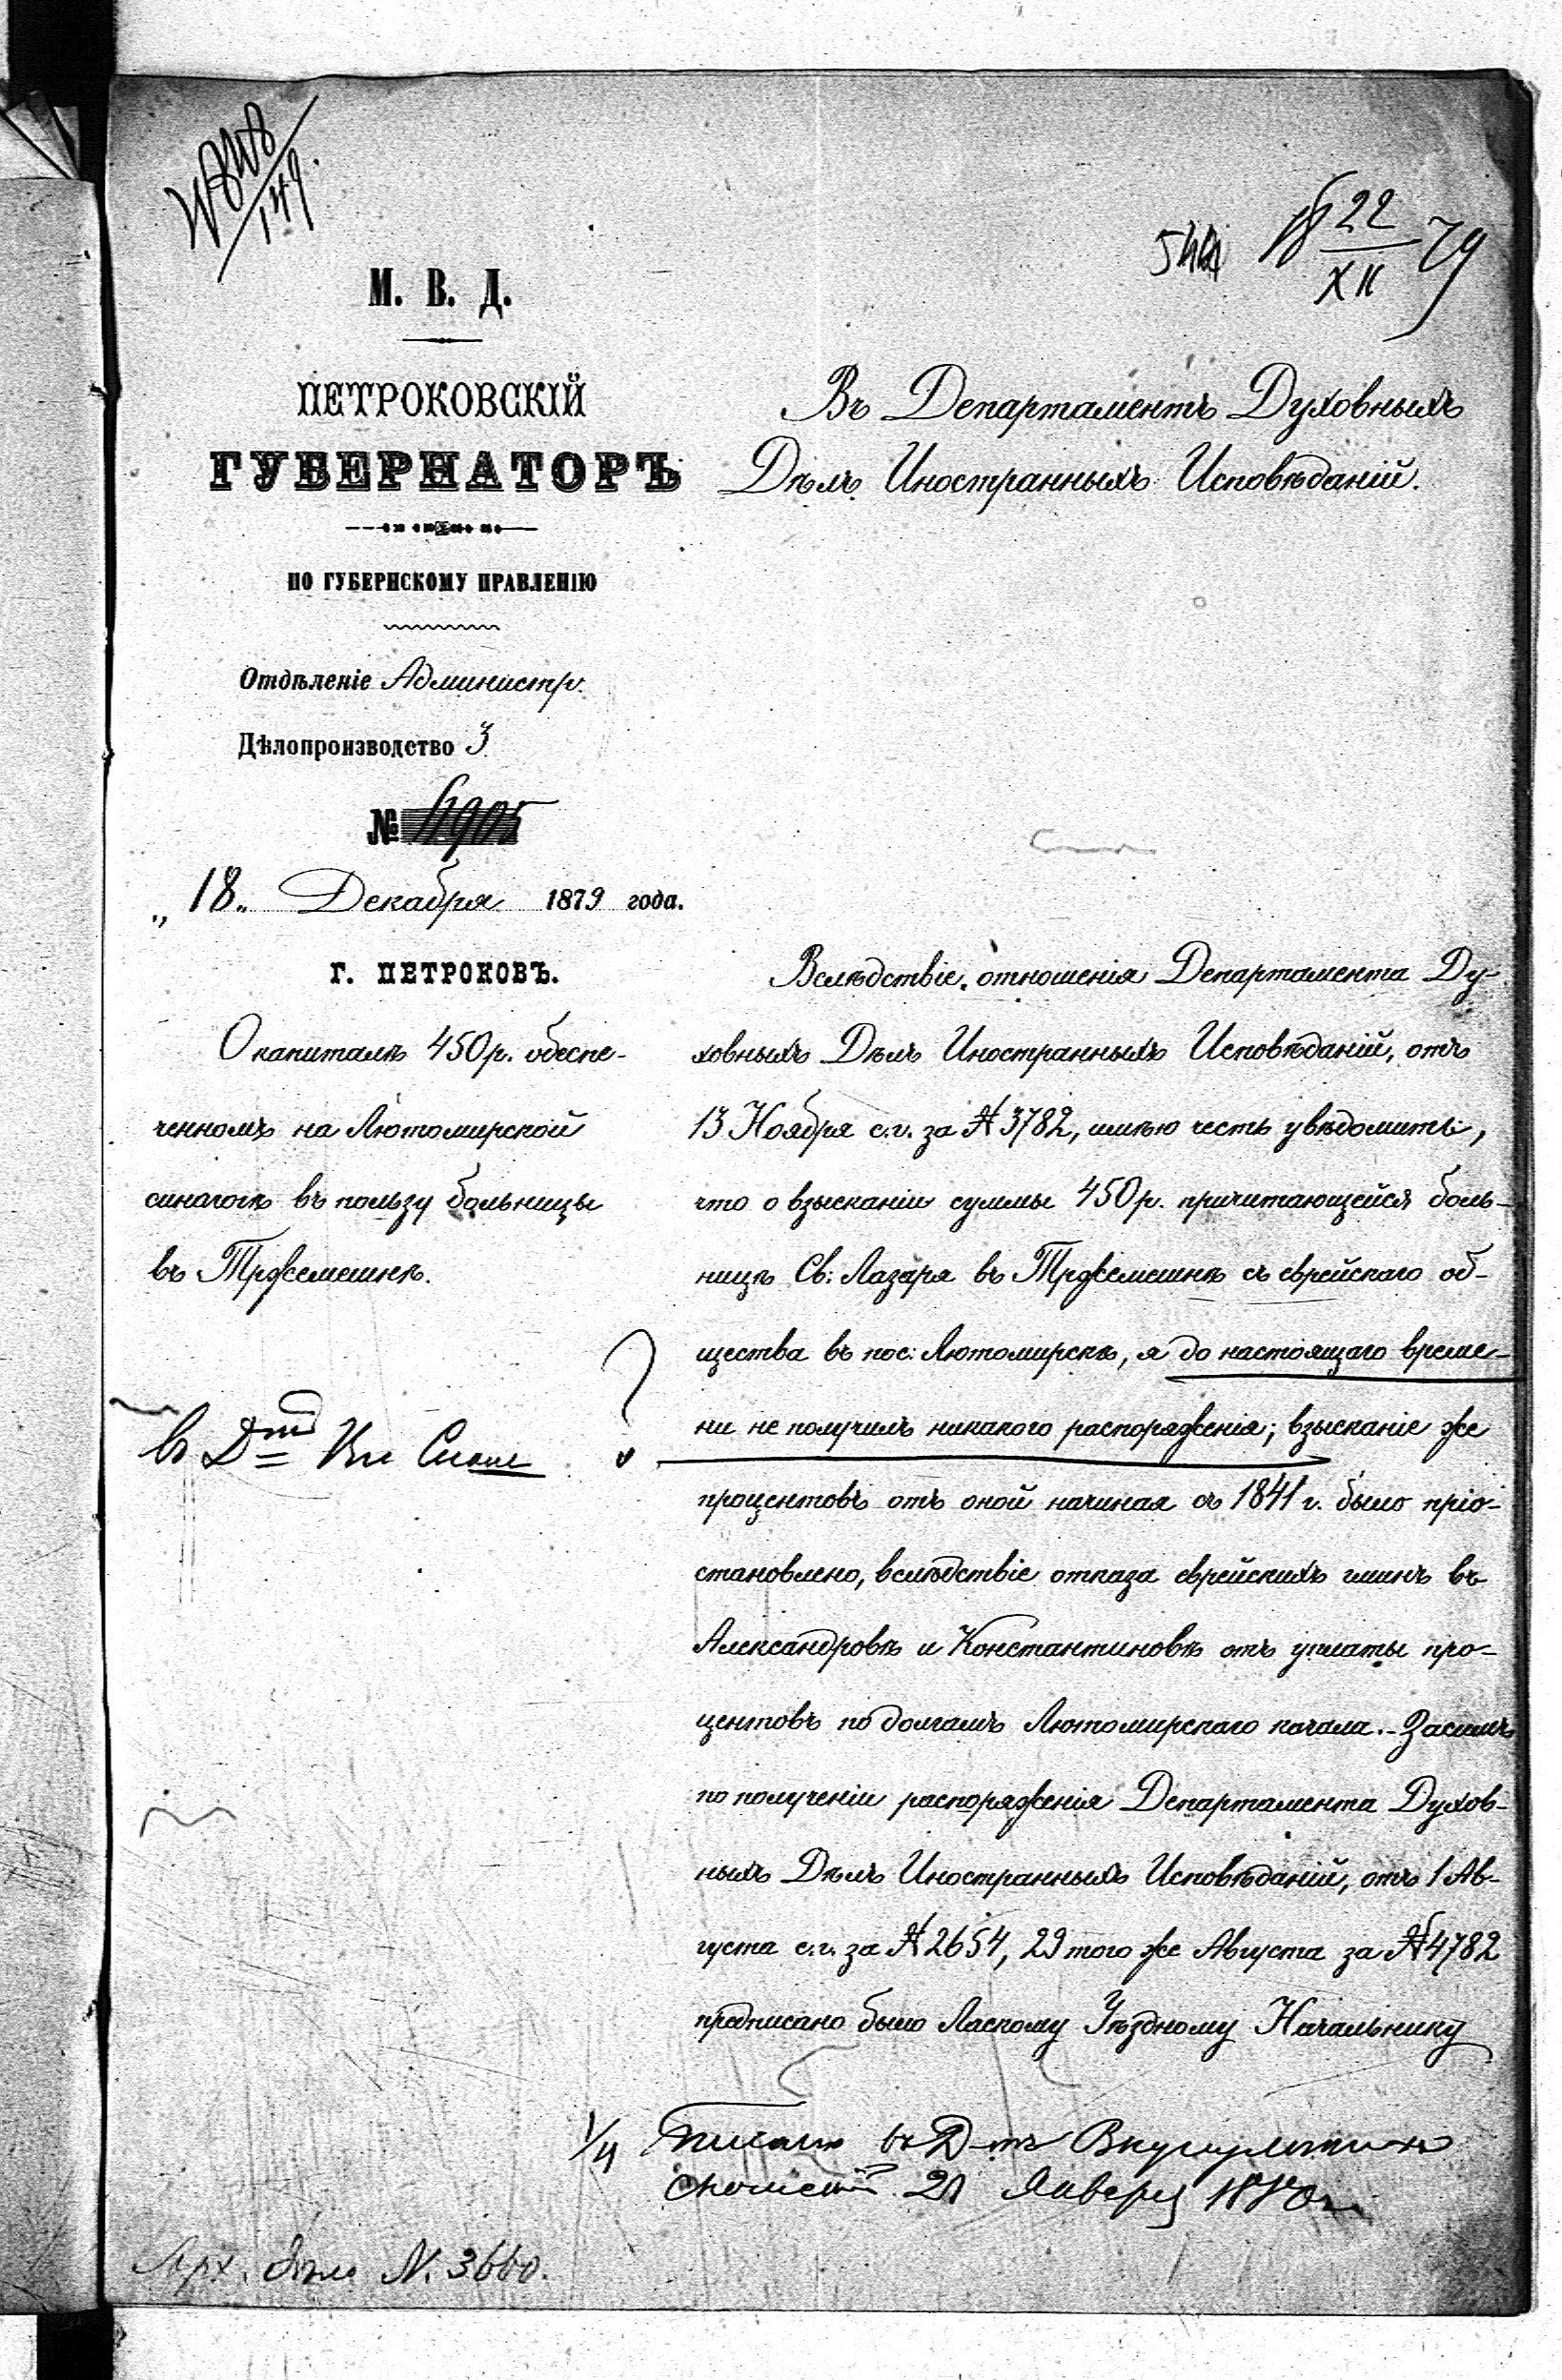 18 22/XII 79
М. В. Д.
ПЕТРОКОВСКІЙ
ГУБЕРНАТОРЪ
ПО ГУБЕРНСКОМУ ПРАВЛЕНІЮ
Отдѣленіе Администр.
Дѣлопроизводство 3
№ 6905
„18„ Декабря 1879 года.
Г. ПЕТРОКОВЪ.
О капиталѣ 450 р. обеспе-
ченномъ на Лютомирской
синагогѣ въ пользу больницы
въ Трժемешнѣ.
Въ Департаментъ Духовныхъ
Дѣлъ Иностранныхъ Исповѣданій.
Вслѣдствіе отношенія Департамента Ду-
ховныхъ Дѣлъ Иностранныхъ Исповѣданій, отъ
13 Ноября с.г. за № 3782, имѣю честь увѣдомить,
что о взысканіи суммы 450 р. причитающейся боль-
ницѣ Св: Лазаря въ Тржемешнѣ съ еврейскаго об-
щества въ пос: Лютомирскѣ, я до настоящаго време-
ни не получилъ никакого распоряженія; взысканіе же
процентовъ отъ оной начиная съ 1841 г. было пріо-
становлено, вслѣдствіе отказа еврейскихъ гминъ въ
Александровѣ и Константиновѣ отъ уплаты про-
центовъ по долгамъ Лютомирскаго кагала. - Засимъ
по полученіи распоряженія Департамента Духов-
ныхъ Дѣлъ Иностранныхъ Исповѣданій, отъ 1 Ав-
густа с.г. за № 2654, 29 того же Августа за № 4782
предписано было Ласкому Уѣздному Начальнику
Арх. дѣло N. 3660.